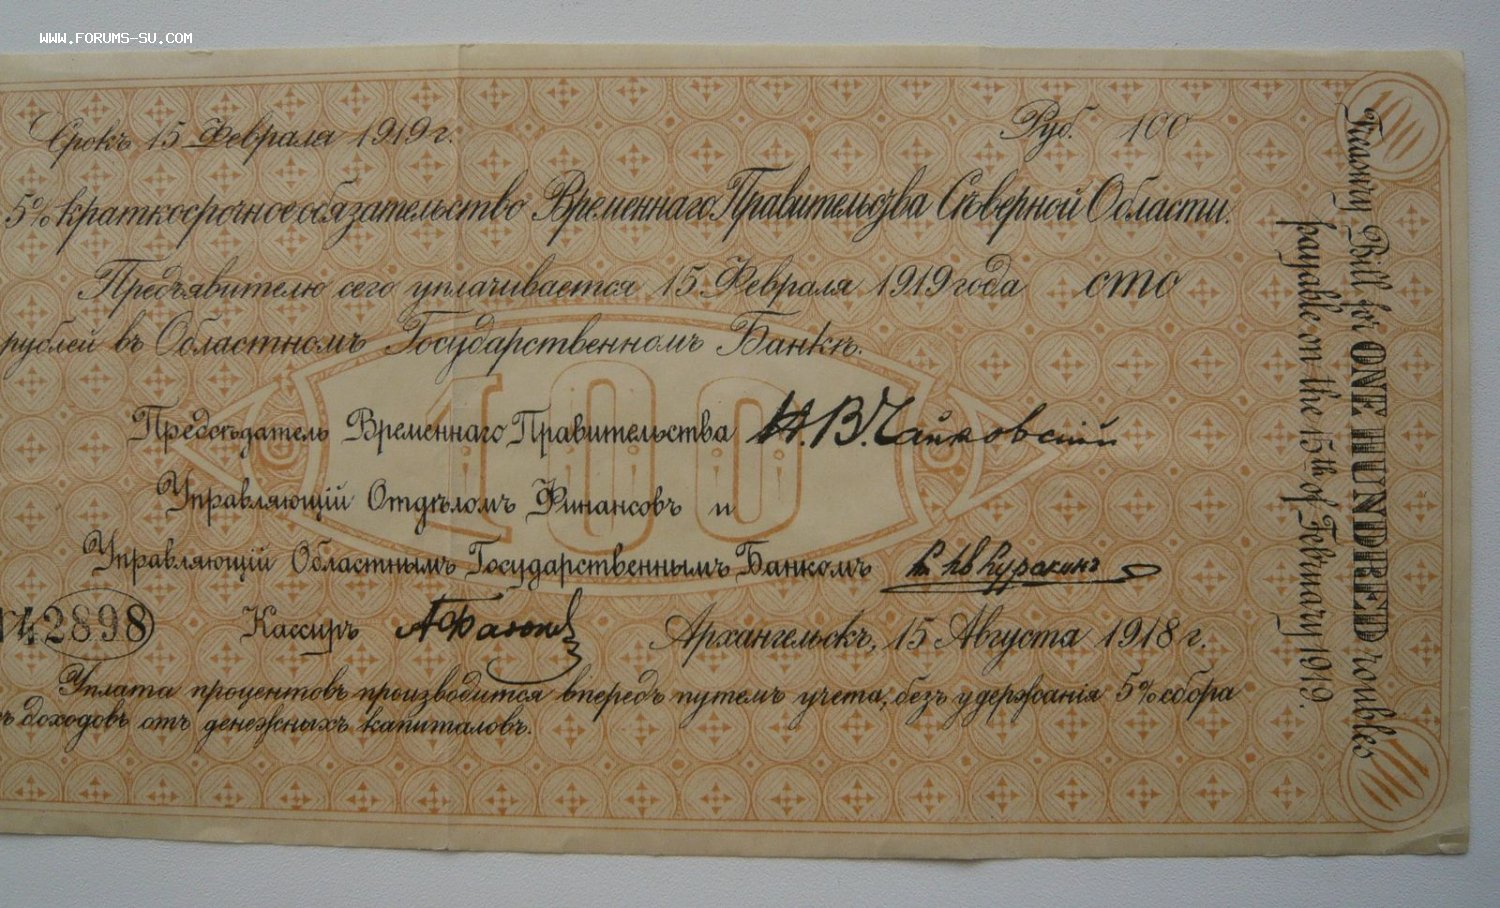 WWW.FORUMS-SU.COM
Срокъ 15 Февраля 1919 г.
Руб. 100
5% краткосрочное обязательство Временнаго Правительства Сѣверной Области.
Предъявителю сего уплачивается 15 Февраля 1919 года сто
рублей въ Областномъ Государственномъ Банкѣ.
100
Предсѣдатель Временнаго Правительства Н. В. Чайковский
Управляющій Отдѣломъ Финансовъ и
Управляющій Областнымъ Государственнымъ Банкомъ Куракинъ
2898
Кассиръ
Архангельскъ, 15 Августа 1918 г.
Уплата процентовъ производится впередъ путемъ учета, безъ удержанія 5% сбора
съ доходовъ отъ денежныхъ капиталовъ.
Treasury Bill for ONE HUNDRED roubles
payable on the 15th of February 1919.